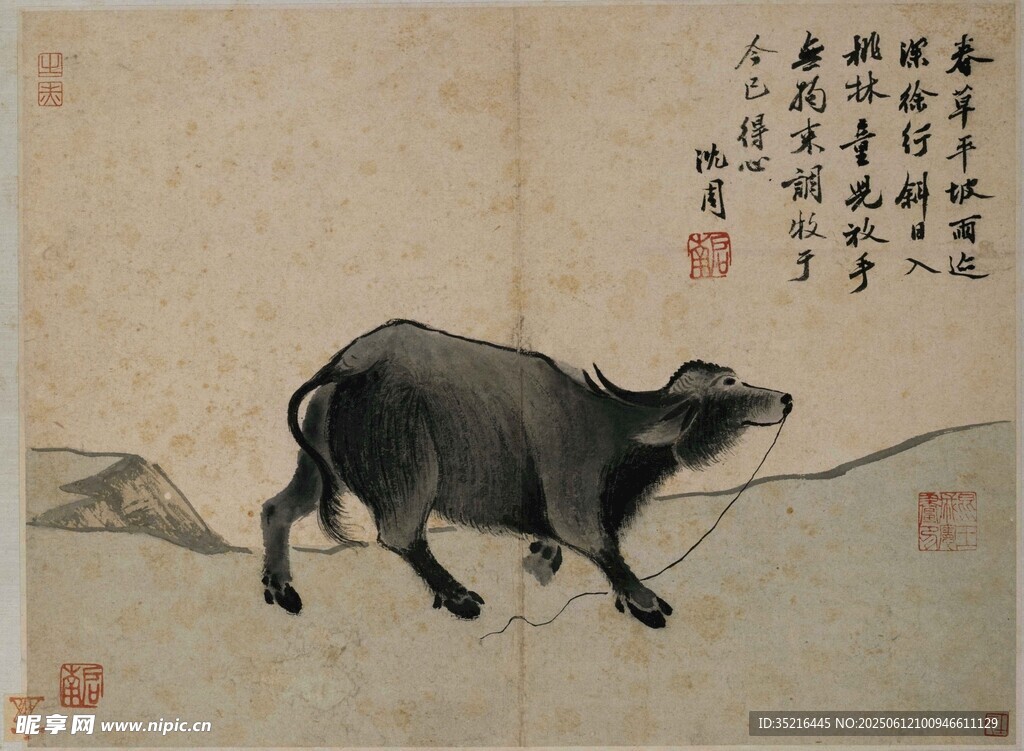 春草平坡雨迹
深徐行斜日入
桃林童児放手
無拘束調牧于
今已得心
沈周
啟南
啟南
昵享网 www.nipic.cn
ID:35216445 NO:20250612100946611129